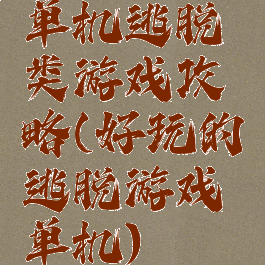 单机逃脱
类游戏攻
略(好玩的
逃脱游戏
单机)